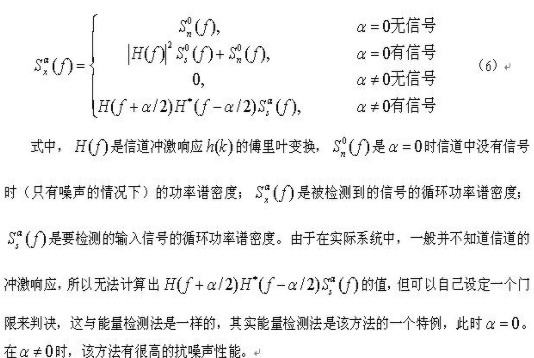 S_n^0(f), α = 0无信号
|H(f)|² S_s^0(f) + S_n^0(f), α = 0有信号
S_x^α(f) = { （6）
0, α ≠ 0无信号
H(f + α/2)H*(f − α/2)S_s^α(f), α ≠ 0有信号
式中，H(f)是信道冲激响应h(k)的傅里叶变换，S_n^0(f)是α = 0时信道中没有信号
时（只有噪声的情况下）的功率谱密度；S_x^α(f)是被检测到的信号的循环功率谱密度；
S_s^α(f)是要检测的输入信号的循环功率谱密度。由于在实际系统中，一般并不知道信道的
冲激响应，所以无法计算出H(f + α/2)H*(f − α/2)S_s^α(f)的值，但可以自己设定一个门
限来判决，这与能量检测法是一样的，其实能量检测法是该方法的一个特例，此时α = 0。
在α ≠ 0时，该方法有很高的抗噪声性能。